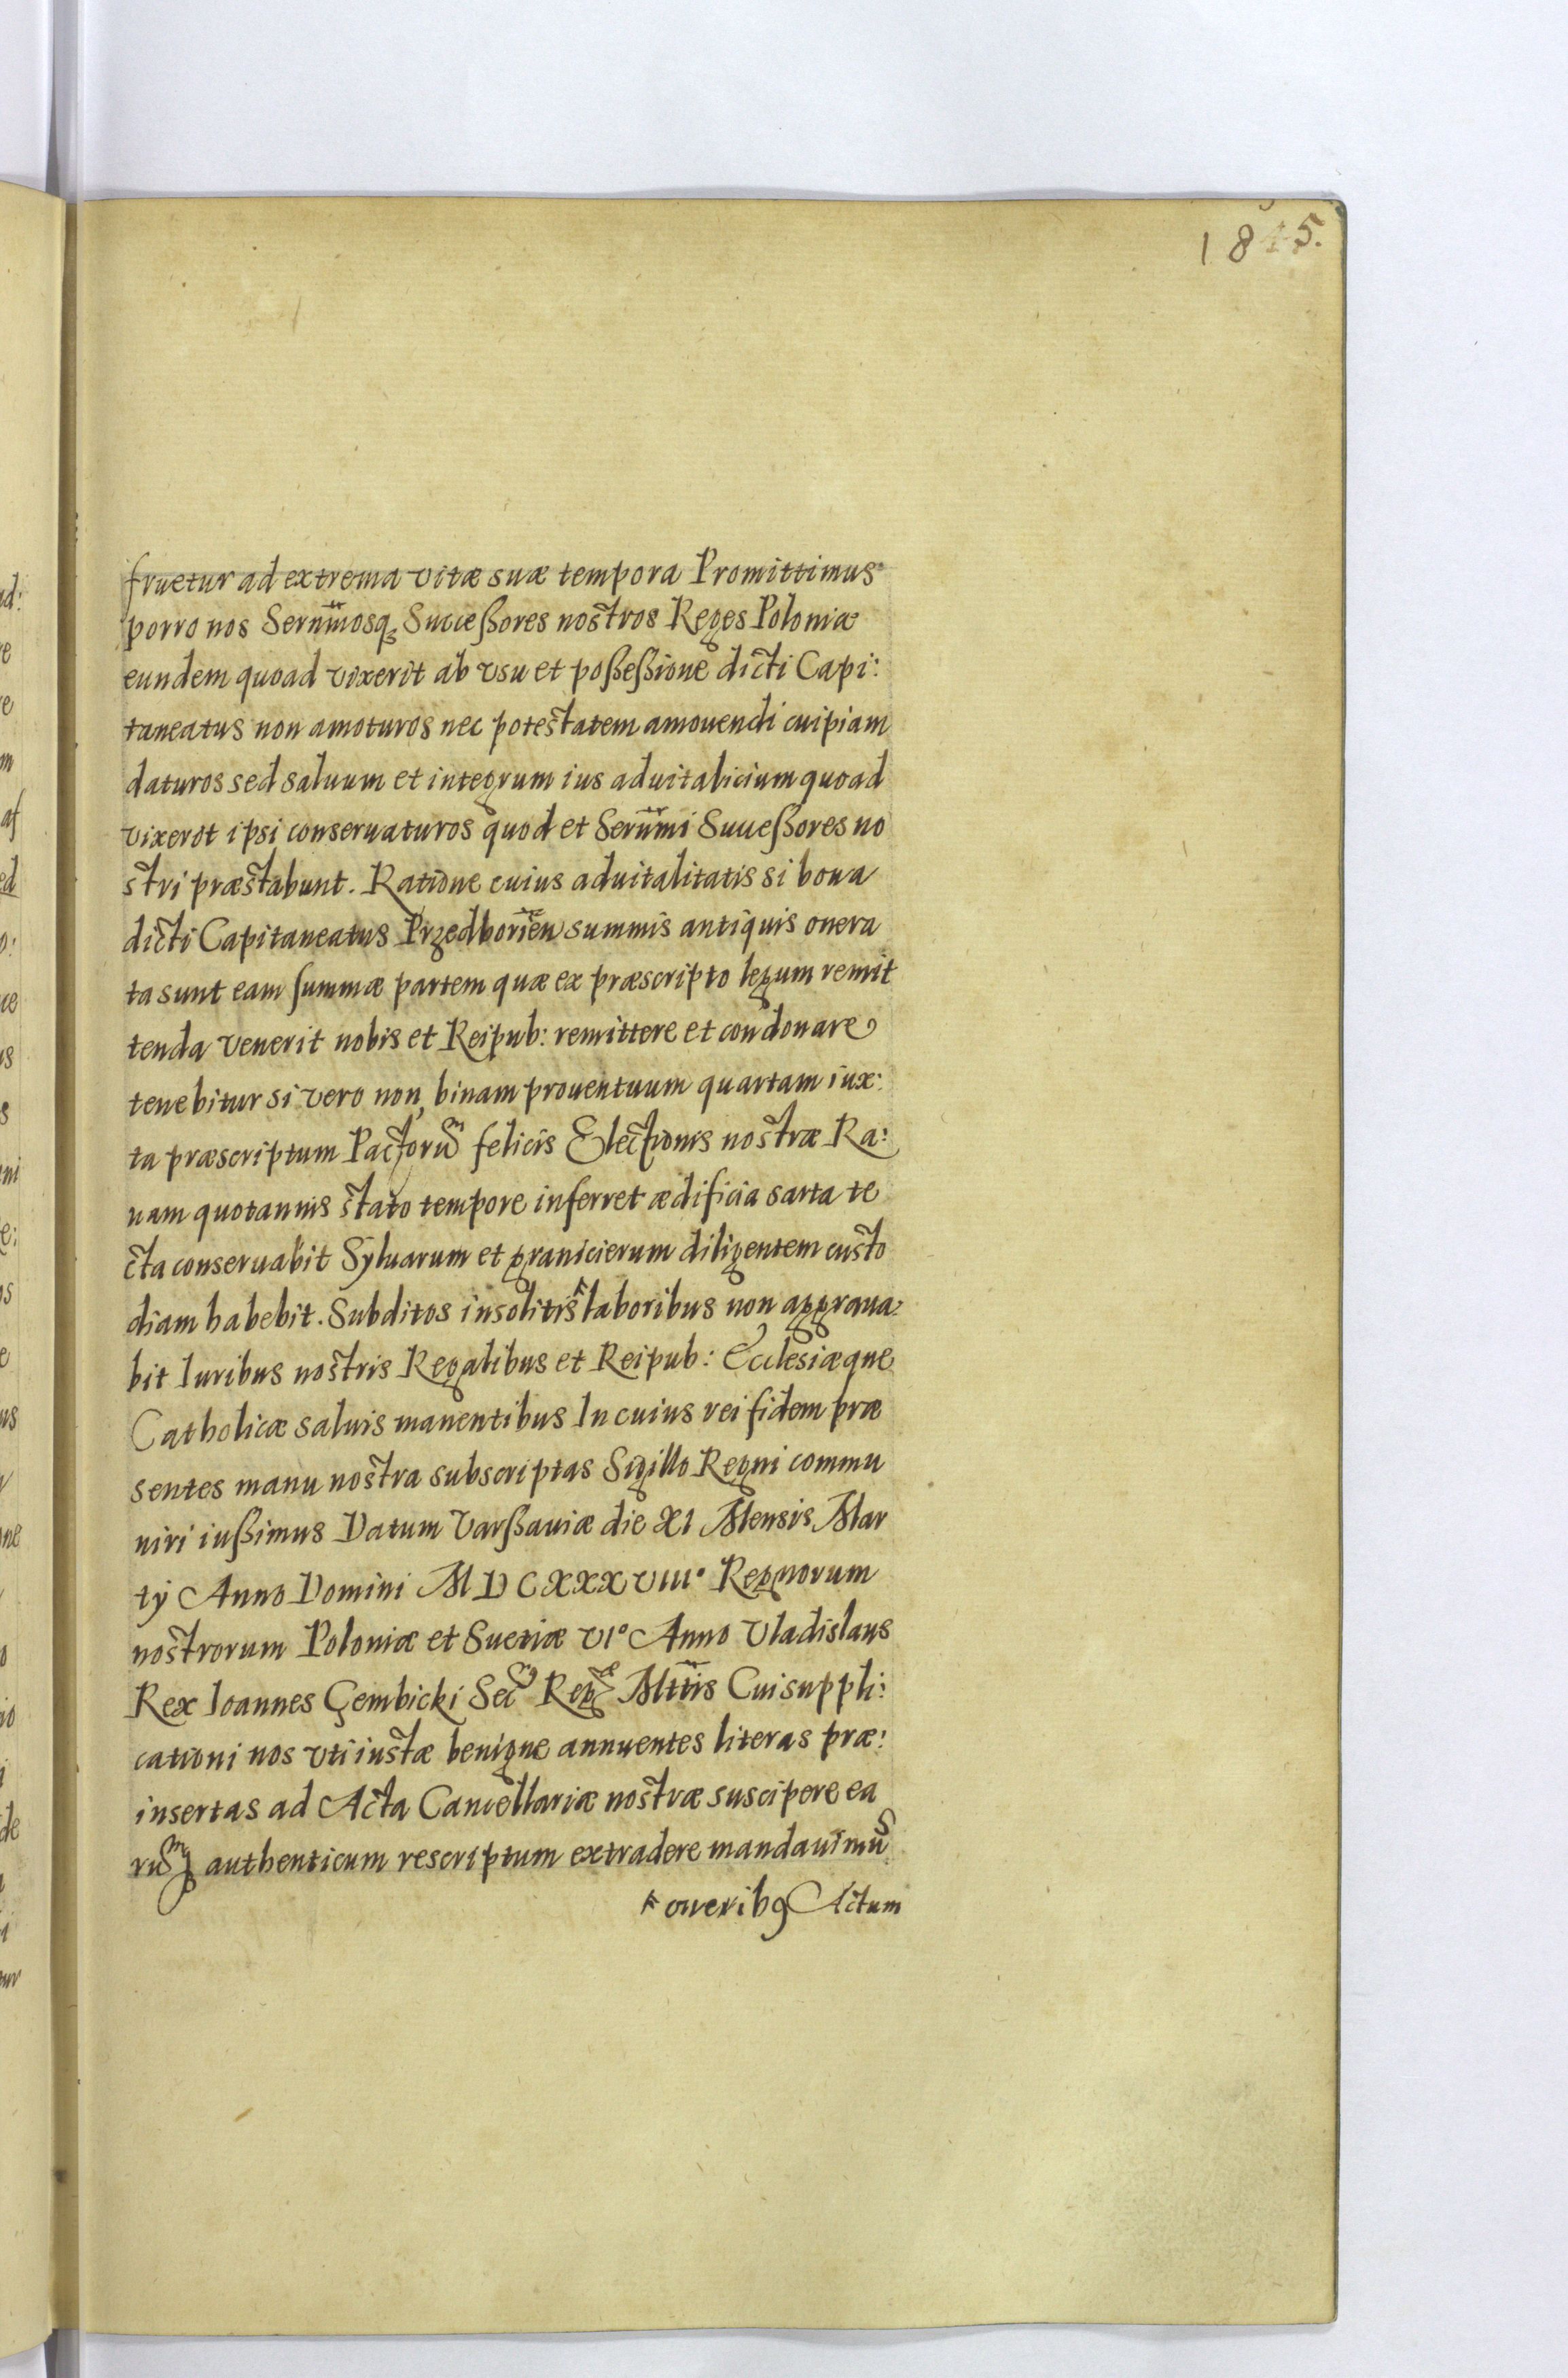 1845.
fruetur ad extrema vitæ suæ tempora Promittimus
porro nos Serñmosq₃ Succeßores nostros Reges Poloniæ
eundem quoad vixerit ab vsu et poßeßione dicti Capi:
taneatus non amoturos nec potestatem amouendi cuipiam
daturos sed saluum et integrum ius aduitalicium quoad
vixerit ipsi conseruaturos quod et Serñmi Succeßores no
stri præstabunt. Ratione cuius aduitalitatis si bona
dicti Capitaneatus Przedborień summis antiquis onera
ta sunt eam summæ partem quæ ex præscripto legum remit
tenda venerit nobis et Reipub: remittere et condonare
tenebitur si vero non, binam prouentuum quartam iux:
ta præscriptum Pactoruͫ felicis Electionis nostræ Ra:
uam quotannis stato tempore inferret ædificia sarta te
cta conseruabit Syluarum et granicierum diligentem custo
diam habebit. Subditos insolitis ⸕ laboribus non aggraua:
bit Iuribus nostris Regalibus et Reipub: Ecclesiæque
Catholicæ saluis manentibus In cuius rei fidem præ
sentes manu nostra subscriptas Sigillo Regni commu
niri iußimus Datum Varßauiæ die XI Mensis Mar
tÿ Anno Domini MDCXXXVIII° Regnorum
nostrorum Poloniæ et Suetiæ VI° Anno Vladislaus
Rex Ioannes Gembicki Sec̃ Reg̃ Mttis Cui suppli:
cationi nos vti iustæ benigne annuentes literas præ:
insertas ad Acta Cancellariæ nostræ suscipere ea
ruͫq₃ authenticum rescriptum extradere mandauimus
⸕ oneribꝰ Actum